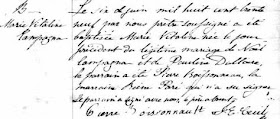 B
Marie Vitaline
Campagna
Le six de juin mil huit cent trente
neuf par nous prêtre soussigné a été
baptisée Marie Vitaline née le jour
précédent du légitime mariage de Noël
Campagna et de Pauline Dallaire,
le parrain a été Pierre Boissonneau, la
marraine Reine Paré qui n'a su signer,
le parrain a signé avec nous
Pierre Boissonnault